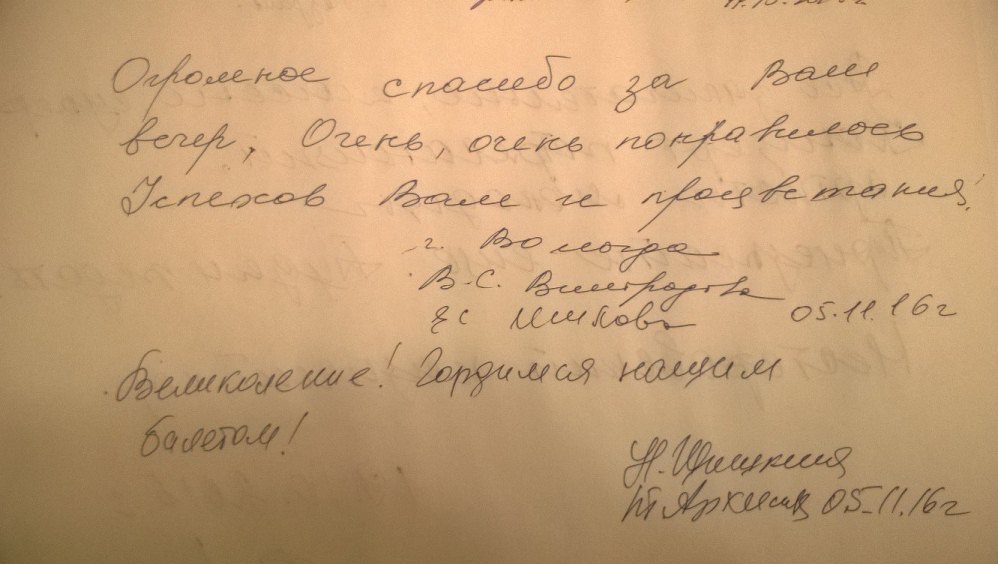 Огромное спасибо за Ваш
вечер, Очень, очень понравилось
Успехов Вам и процветания!
г. Вологда
В.С.
05.11.16г
Великолепие! Гордимся нашим
балетом!
Н.
05.11.16г